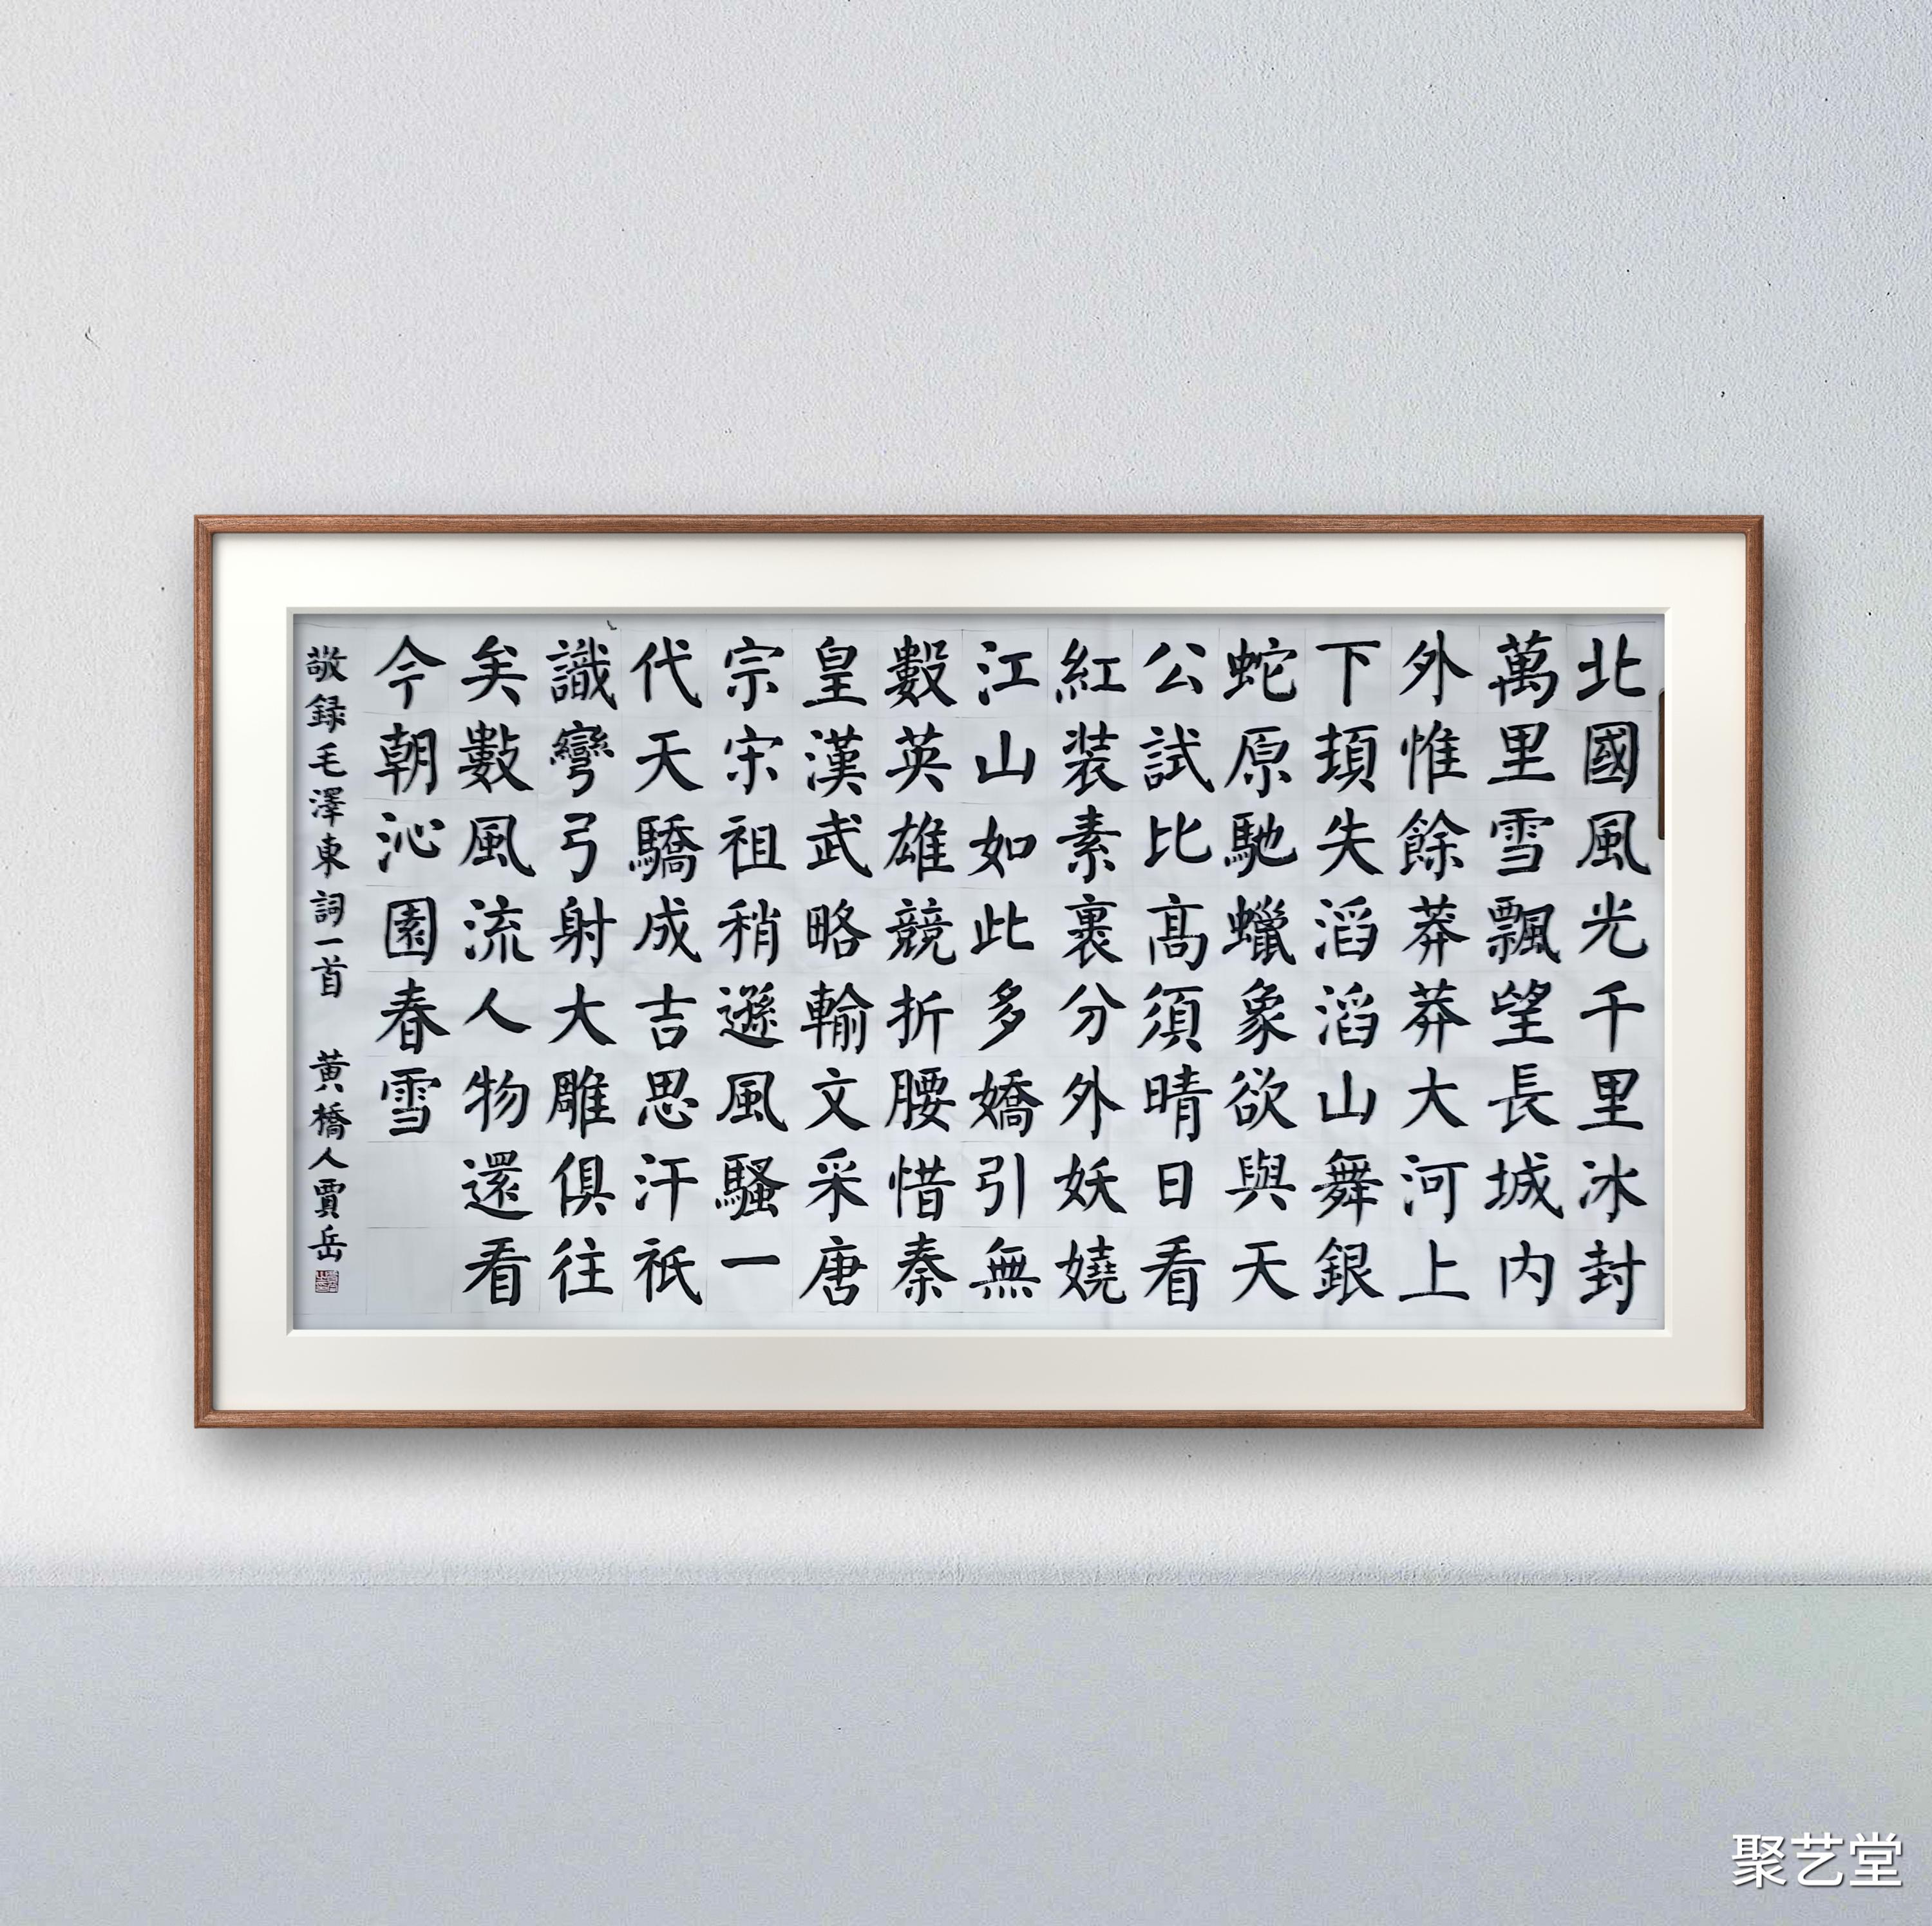 北國風光千里冰封
萬里雪飄望長城内
外惟餘莽莽大河上
下頓失滔滔山舞銀
蛇原馳蠟象欲與天
公試比髙須晴日看
紅装素裹分外妖嬈
江山如此多嬌引無
數英雄競折腰惜秦
皇漢武略輸文采唐
宗宋祖稍遜風騷一
代天驕成吉思汗祇
識彎弓射大雕俱往
矣數風流人物還看
今朝沁園春雪
敬録毛澤東詞一首 黄橋人賈岳
聚艺堂